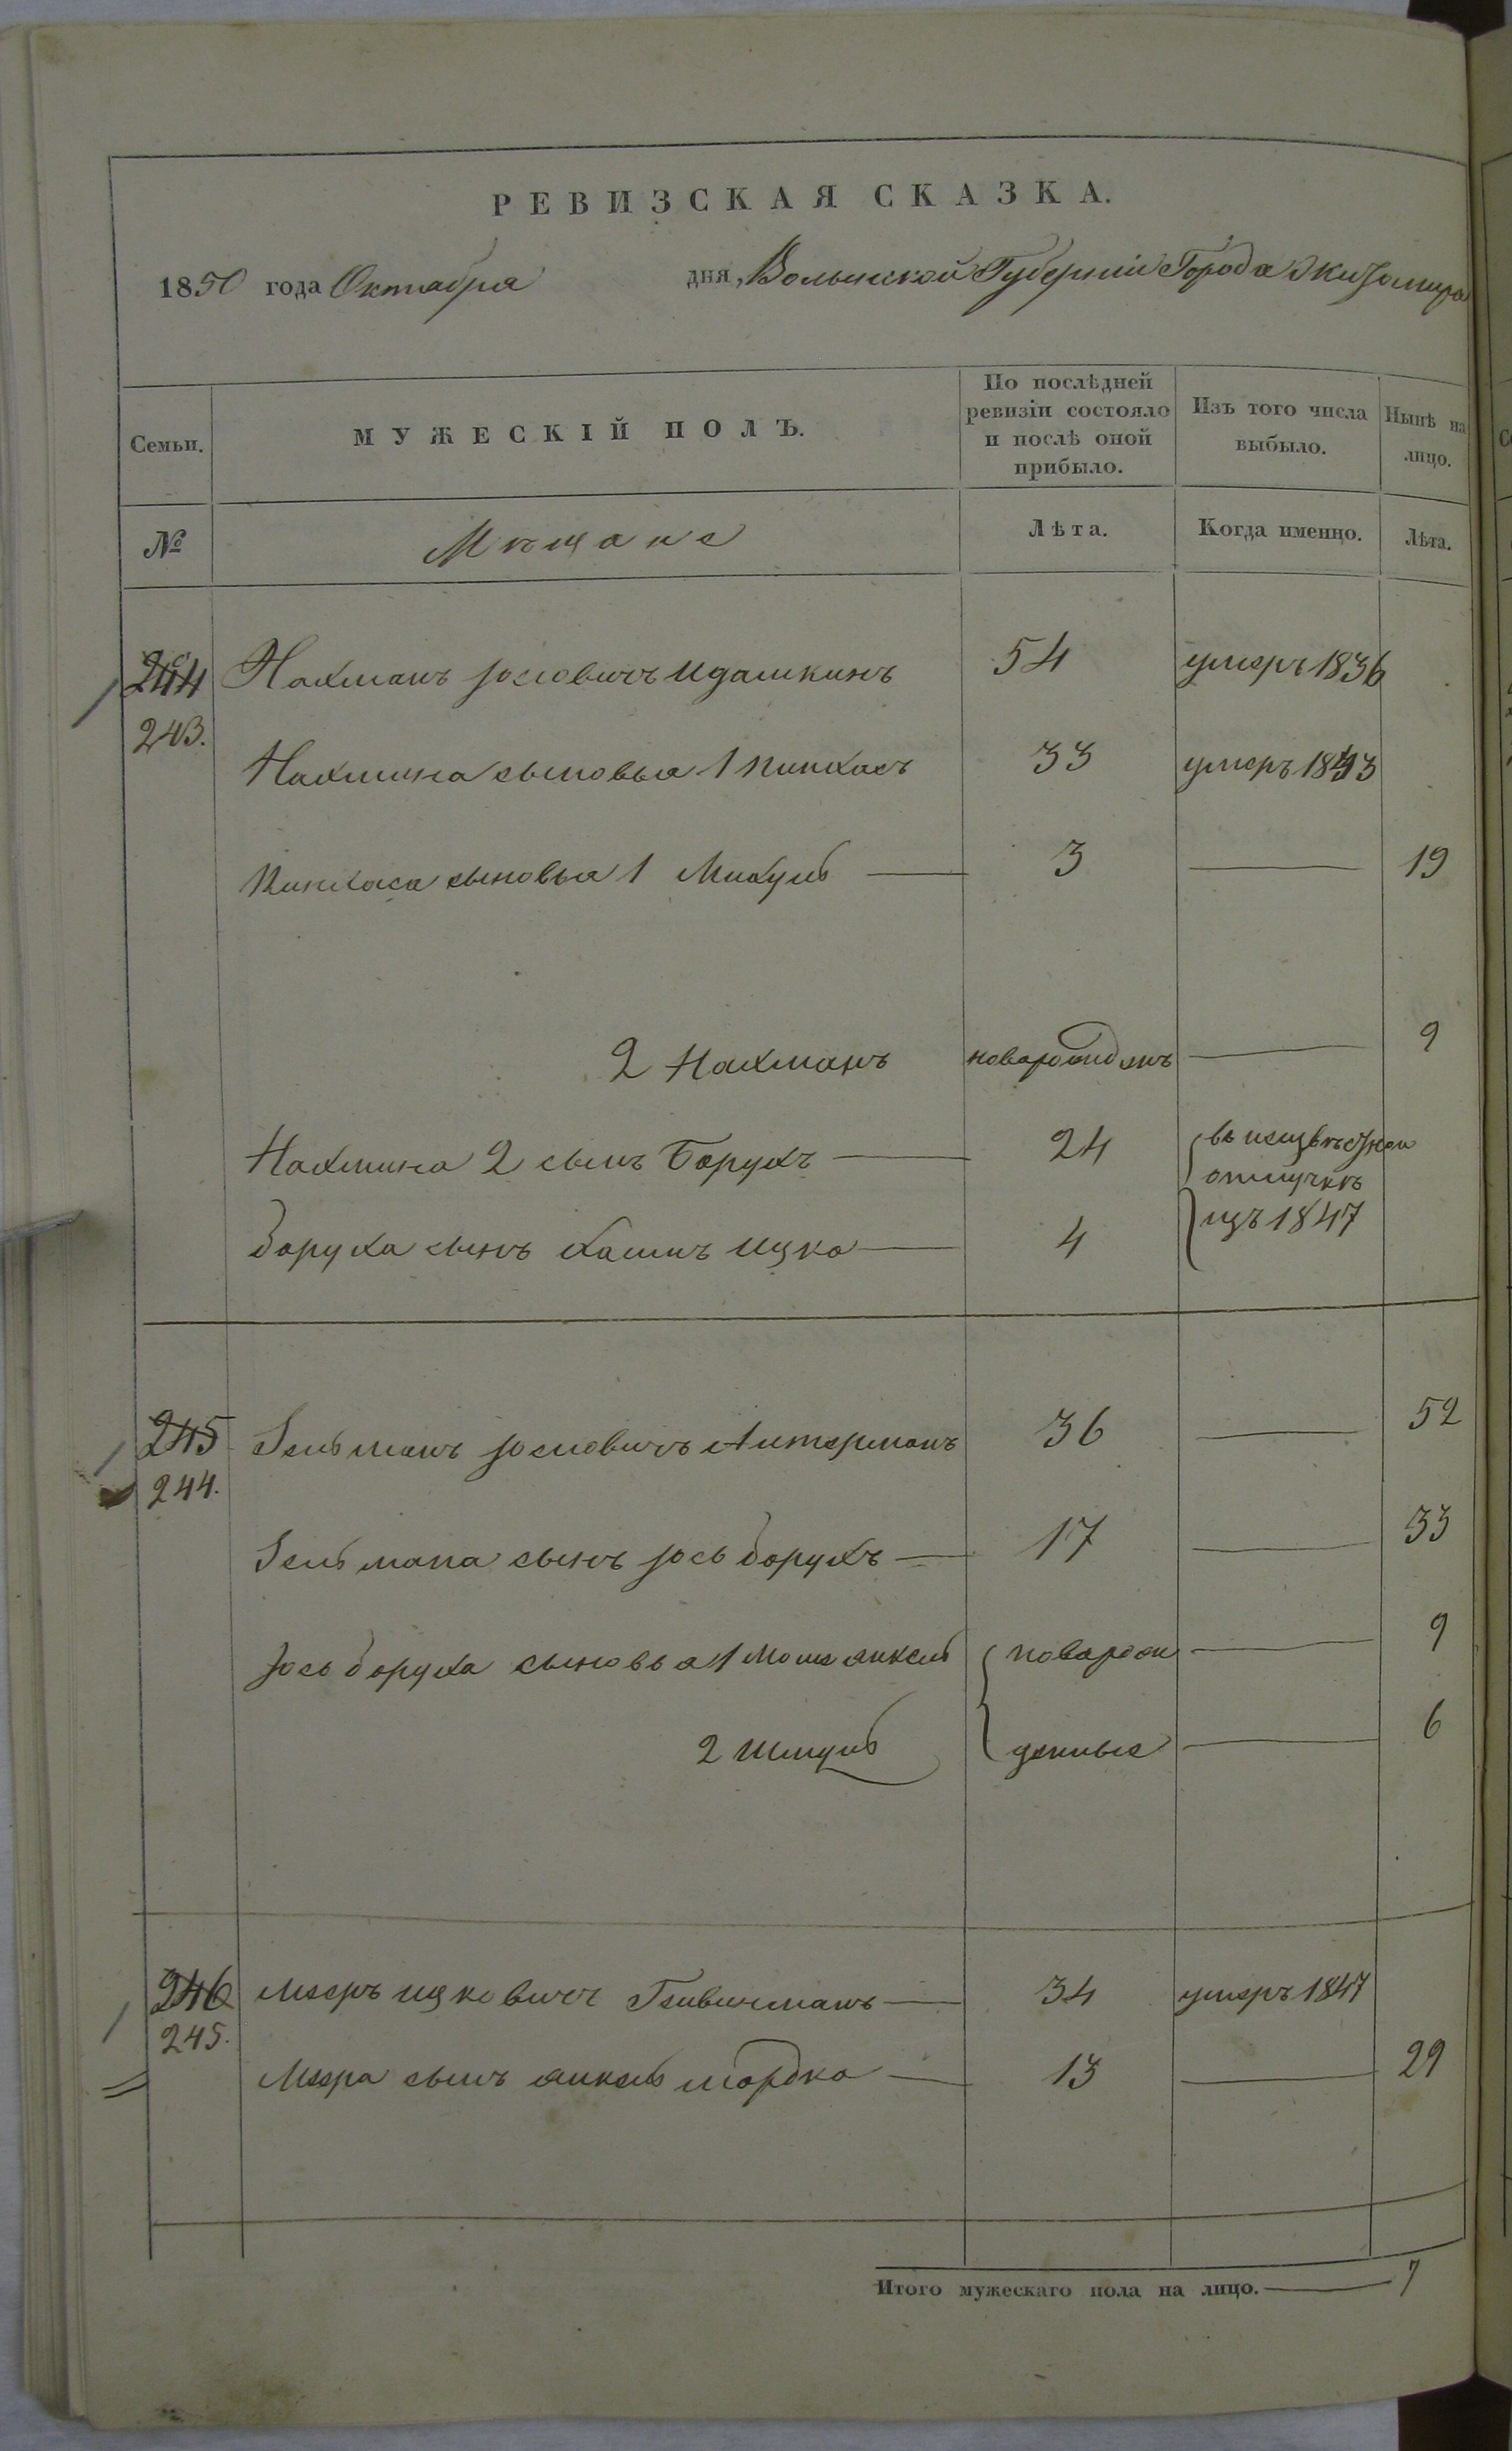 РЕВИЗСКАЯ СКАЗКА.
1850 года Октября дня, Волынской Губерніи Города Житомира
Семьи.
МУЖЕСКІЙ ПОЛЪ.
По послѣдней ревизіи состояло и послѣ оной прибыло.
Изъ того числа выбыло.
Нынѣ на лицо.
№
Мѣщане
Лѣта.
Когда именно.
Лѣта.
244 Нахманъ Іосіовичъ 54 умеръ 1836
243.
Нахмина сыновья 1 Пинхасъ 33 умеръ 1843
Пинхаса сыновья 1 Михуль 3 19
2 Нахманъ новарожденъ 9
Нахмина 2 сынъ Борухъ 24 въ неизвѣстной
отлучкѣ
Боруха сынъ Хаимъ Ицко 4 изъ 1847
245 Зельманъ Іосіовичъ Антерманъ 36 52
244.
Зельмана сынъ Іось Борухъ 17 33
Іось Боруха сыновья 1 Мошъ Янкель новарож 9
2 Шмуль денные 6
246 Мееръ Ицковичъ 34 умеръ 1847
245.
Меера сынъ Янкель Мордко 13 29
Итого мужескаго пола на лицо. 7